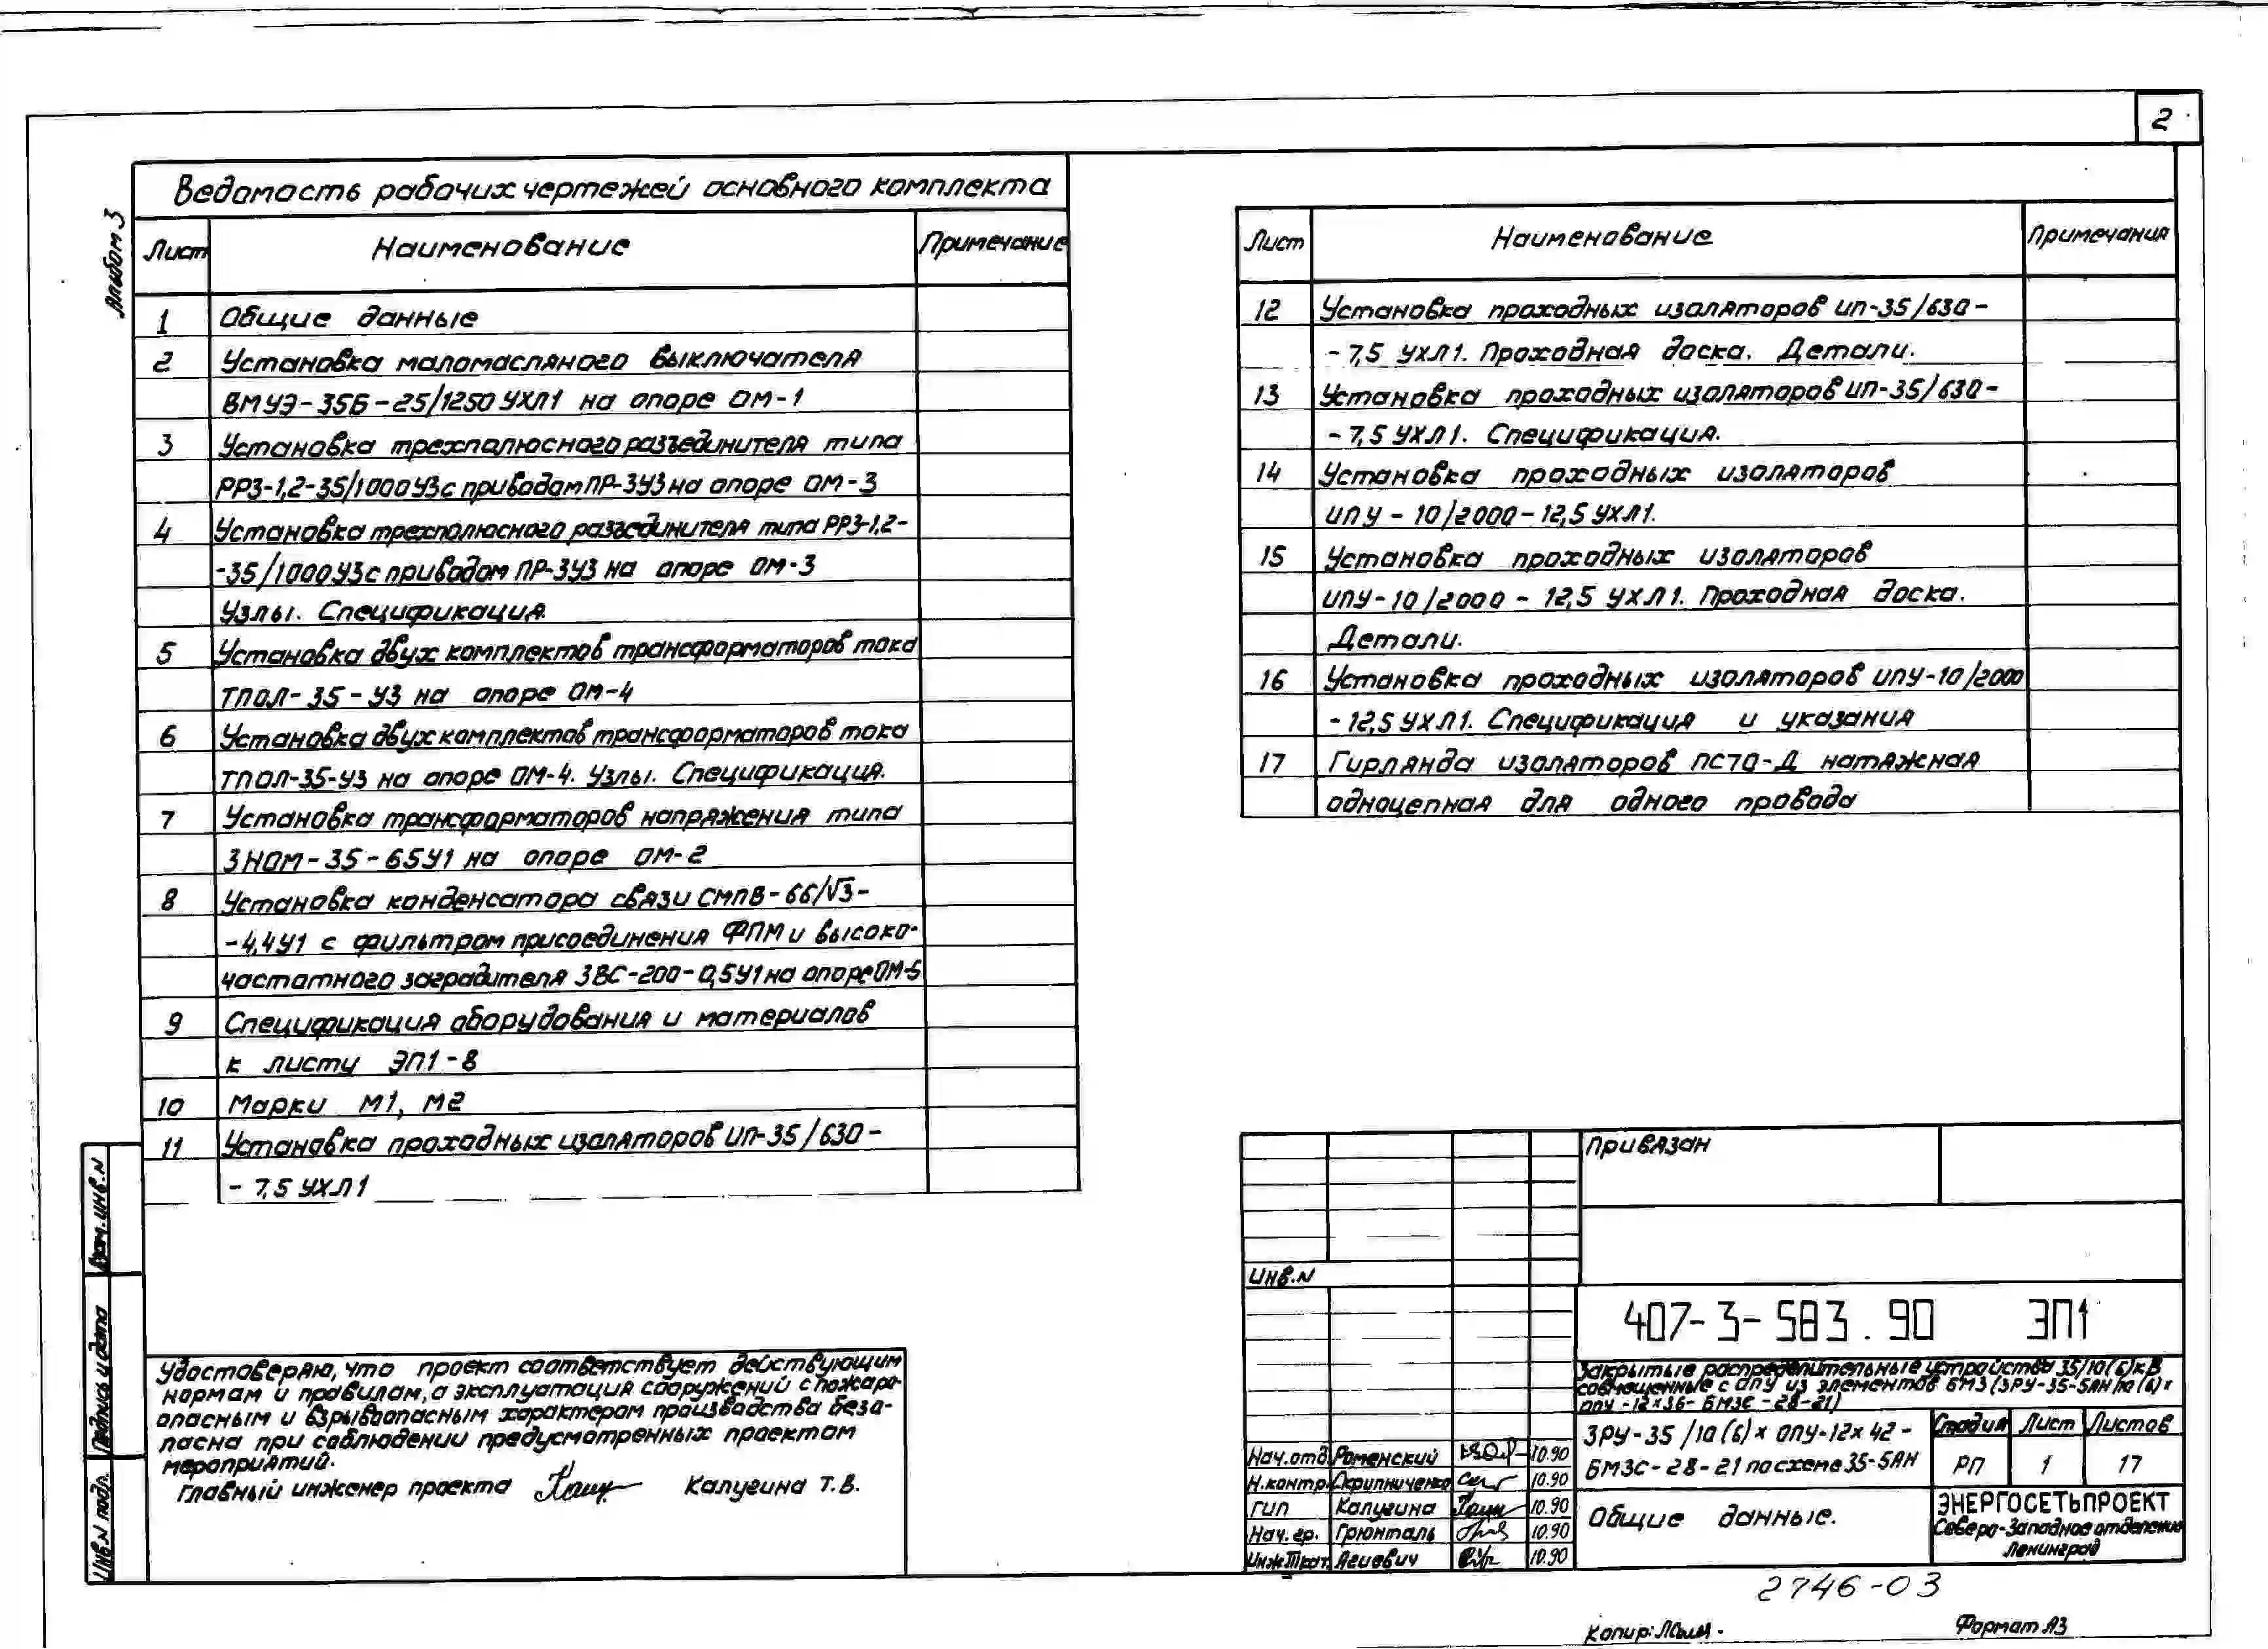 2
Альбом 3
Ведомость рабочих чертежей основного комплекта
Лист Наименование Примечание
1 Общие данные
2 Установка маломасляного выключателя
ВМУЭ-35Б-25/1250 УХЛ1 на опоре ОМ-1
3 Установка трехполюсного разъединителя типа
РРЗ-1,2-35/1000 У3 с приводом ПР-3У3 на опоре ОМ-3
4 Установка трехполюсного разъединителя типа РРЗ-1,2-
-35/1000 У3 с приводом ПР-3У3 на опоре ОМ-3
Узлы. Спецификация.
5 Установка двух комплектов трансформаторов тока
ТПОЛ-35-У3 на опоре ОМ-4
6 Установка двух комплектов трансформаторов тока
ТПОЛ-35-У3 на опоре ОМ-4. Узлы. Спецификация.
7 Установка трансформаторов напряжения типа
ЗНОМ-35-65У1 на опоре ОМ-2
8 Установка конденсатора связи СМПВ-66/√3-
-4,4У1 с фильтром присоединения ФПМ и высоко-
частотного заградителя ЗВС-200-0,5У1 на опоре ОМ-5
9 Спецификация оборудования и материалов
к листу ЭП1-8
10 Марки М1, М2
11 Установка проходных изоляторов ИП-35/630-
-7,5 УХЛ1
Лист Наименование Примечания
12 Установка проходных изоляторов ИП-35/630-
-7,5 УХЛ1. Проходная доска. Детали.
13 Установка проходных изоляторов ИП-35/630-
-7,5 УХЛ1. Спецификация.
14 Установка проходных изоляторов
ИПУ-10/2000-12,5 УХЛ1.
15 Установка проходных изоляторов
ИПУ-10/2000-12,5 УХЛ1. Проходная доска.
Детали.
16 Установка проходных изоляторов ИПУ-10/2000
-12,5 УХЛ1. Спецификация и указания
17 Гирлянда изоляторов ПС70-Д натяжная
одноцепная для одного провода
Взам. инв. N
Подпись и дата
Инв. N подл.
Удостоверяю, что проект соответствует действующим
нормам и правилам, а эксплуатация сооружений с пожаро-
опасным и взрывоопасным характером производства безо-
пасна при соблюдении предусмотренных проектом
мероприятий.
Главный инженер проекта Калугина Т.В.
Привязан
Инв. N
407-3-583.90 ЭП1
Закрытые распределительные устройства 35/10(6)кВ
совмещенные с ОПУ из элементов БМЗ (ЗРУ-35-5АН/10(6)х
ОПУ-12х36-БМЗС-28-21)
ЗРУ-35/10(6)х ОПУ-12х42-
БМЗС-28-21 по схеме 35-5АН
Стадия Лист Листов
РП 1 17
Нач.отд. Роменский 10.90
Н.контр. Скрипниченко 10.90
ГИП Калугина 10.90
Нач.гр. Грюнталь 10.90
Инж.IIкат. Агиевич 10.90
Общие данные.
ЭНЕРГОСЕТЬПРОЕКТ
Северо-Западное отделение
Ленинград
2746-03
Копир:
Формат А3